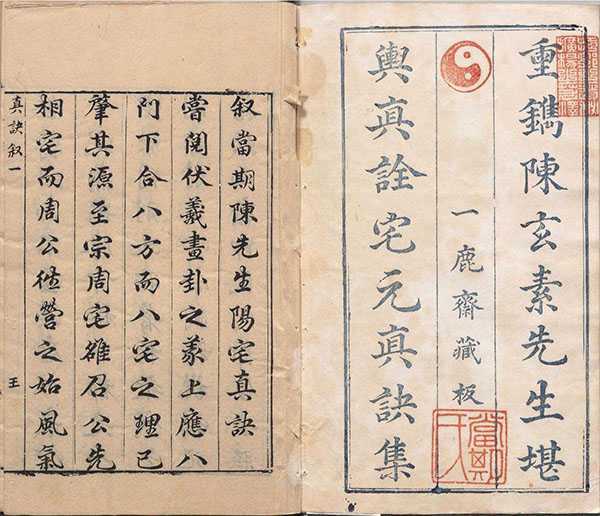 重鐫陳玄素先生堪
一鹿齋藏板
輿真詮宅元真訣集
叙當期陳先生陽宅真訣
嘗閱伏羲畫卦之彖上應八
門下合八方而八宅之理已
肇其源至宗周宅雒召公先
相宅而周公徃營之始風氣
真訣叙一
王